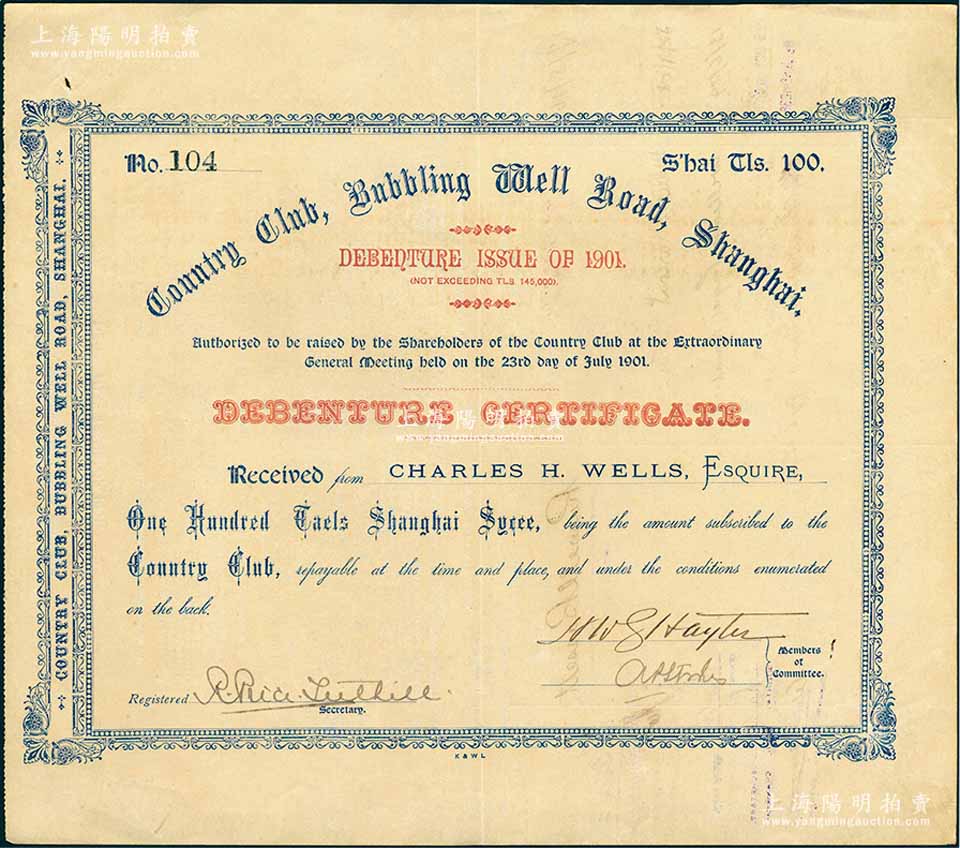 上海陽明拍賣
www.yangmingauction.com
No. 104
S'hai Tls. 100.
Country Club, Bubbling Well Road, Shanghai.
DEBENTURE ISSUE OF 1901.
(NOT EXCEEDING TLS. 145,000).
Authorized to be raised by the Shareholders of the Country Club at the Extraordinary
General Meeting held on the 23rd day of July 1901.
DEBENTURE CERTIFICATE.
上海陽明拍賣
www.yangmingauction.com
Received from CHARLES H. WELLS, ESQUIRE,
One Hundred Taels Shanghai Sycee, being the amount subscribed to the
Country Club, repayable at the time and place, and under the conditions enumerated
on the back.
Members
of
Committee.
Registered
Secretary.
K & W L
COUNTRY CLUB, BUBBLING WELL ROAD, SHANGHAI.
上海陽明拍賣
www.yangmingauction.com